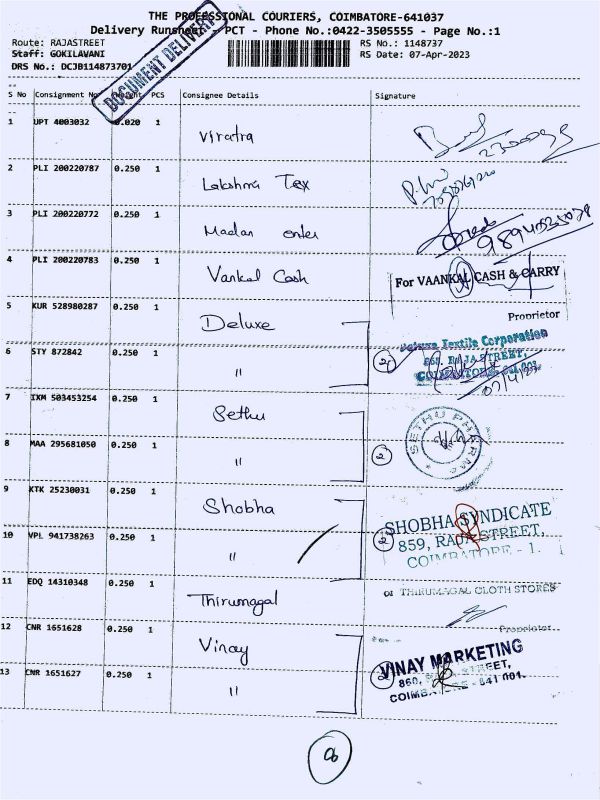 THE PROFESSIONAL COURIERS, COIMBATORE-641037
Delivery Runsheet - PCT - Phone No.:0422-3505555 - Page No.:1
Route: RAJASTREET
RS No.: 1148737
Staff: GOKILAVANI
RS Date: 07-Apr-2023
DRS No.: DCJB114873701
DOCUMENT DELIVERY
S No Consignment No Weight PCS Consignee Details Signature
1 UPT 4003032 0.020 1 Viratra
2 PLI 200220787 0.250 1 Lakshmi Tex
3 PLI 200220772 0.250 1 Madan enter
4 PLI 200220783 0.250 1 Vankal Cash
For VAANKAL CASH & CARRY
Proprietor
5 KUR 528980287 0.250 1 Deluxe
Deluxe Textile Corporation
6 STY 872842 0.250 1 "
2
RAJA STREET,
COIMBATORE-641 001
7 IXM 503453254 0.250 1 Sethu
SETHU PHARMA
8 MAA 295681050 0.250 1 "
2
9 KTK 25230031 0.250 1 Shobha
SHOBHA SYNDICATE
10 VPL 941738263 0.250 1 "
2
859, RAJA STREET,
COIMBATORE - 1.
11 EDQ 14310348 0.250 1 Thirumagal
THIRUMAGAL CLOTH STORES
Proprietor
12 CNR 1651628 0.250 1 Vinay
VINAY MARKETING
13 CNR 1651627 0.250 1 "
2
860, STREET,
COIMBATORE - 641 001.